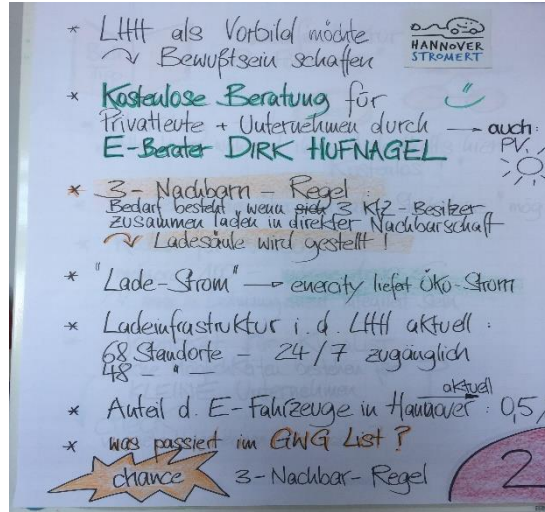 * LHH als Vorbild möchte
↷ Bewußtsein schaffen
HANNOVER
STROMERT
* Kostenlose Beratung für
Privatleute + Unternehmen durch → auch:
E-Berater DIRK HUFNAGEL PV.
* 3-Nachbarn-Regel:
Bedarf besteht, wenn sich 3 Kfz-Besitzer
zusammen laden in direkter Nachbarschaft
↷ Ladesäule wird gestellt!
* "Lade-Strom" → enercity liefert Öko-Strom
* Ladeinfrastruktur i. d. LHH aktuell:
68 Standorte - 24/7 zugänglich
48 - " -
* Anteil d. E-Fahrzeuge in Hannover aktuell: 0,5
* was passiert im GWG List?
chance 3-Nachbar-Regel
2